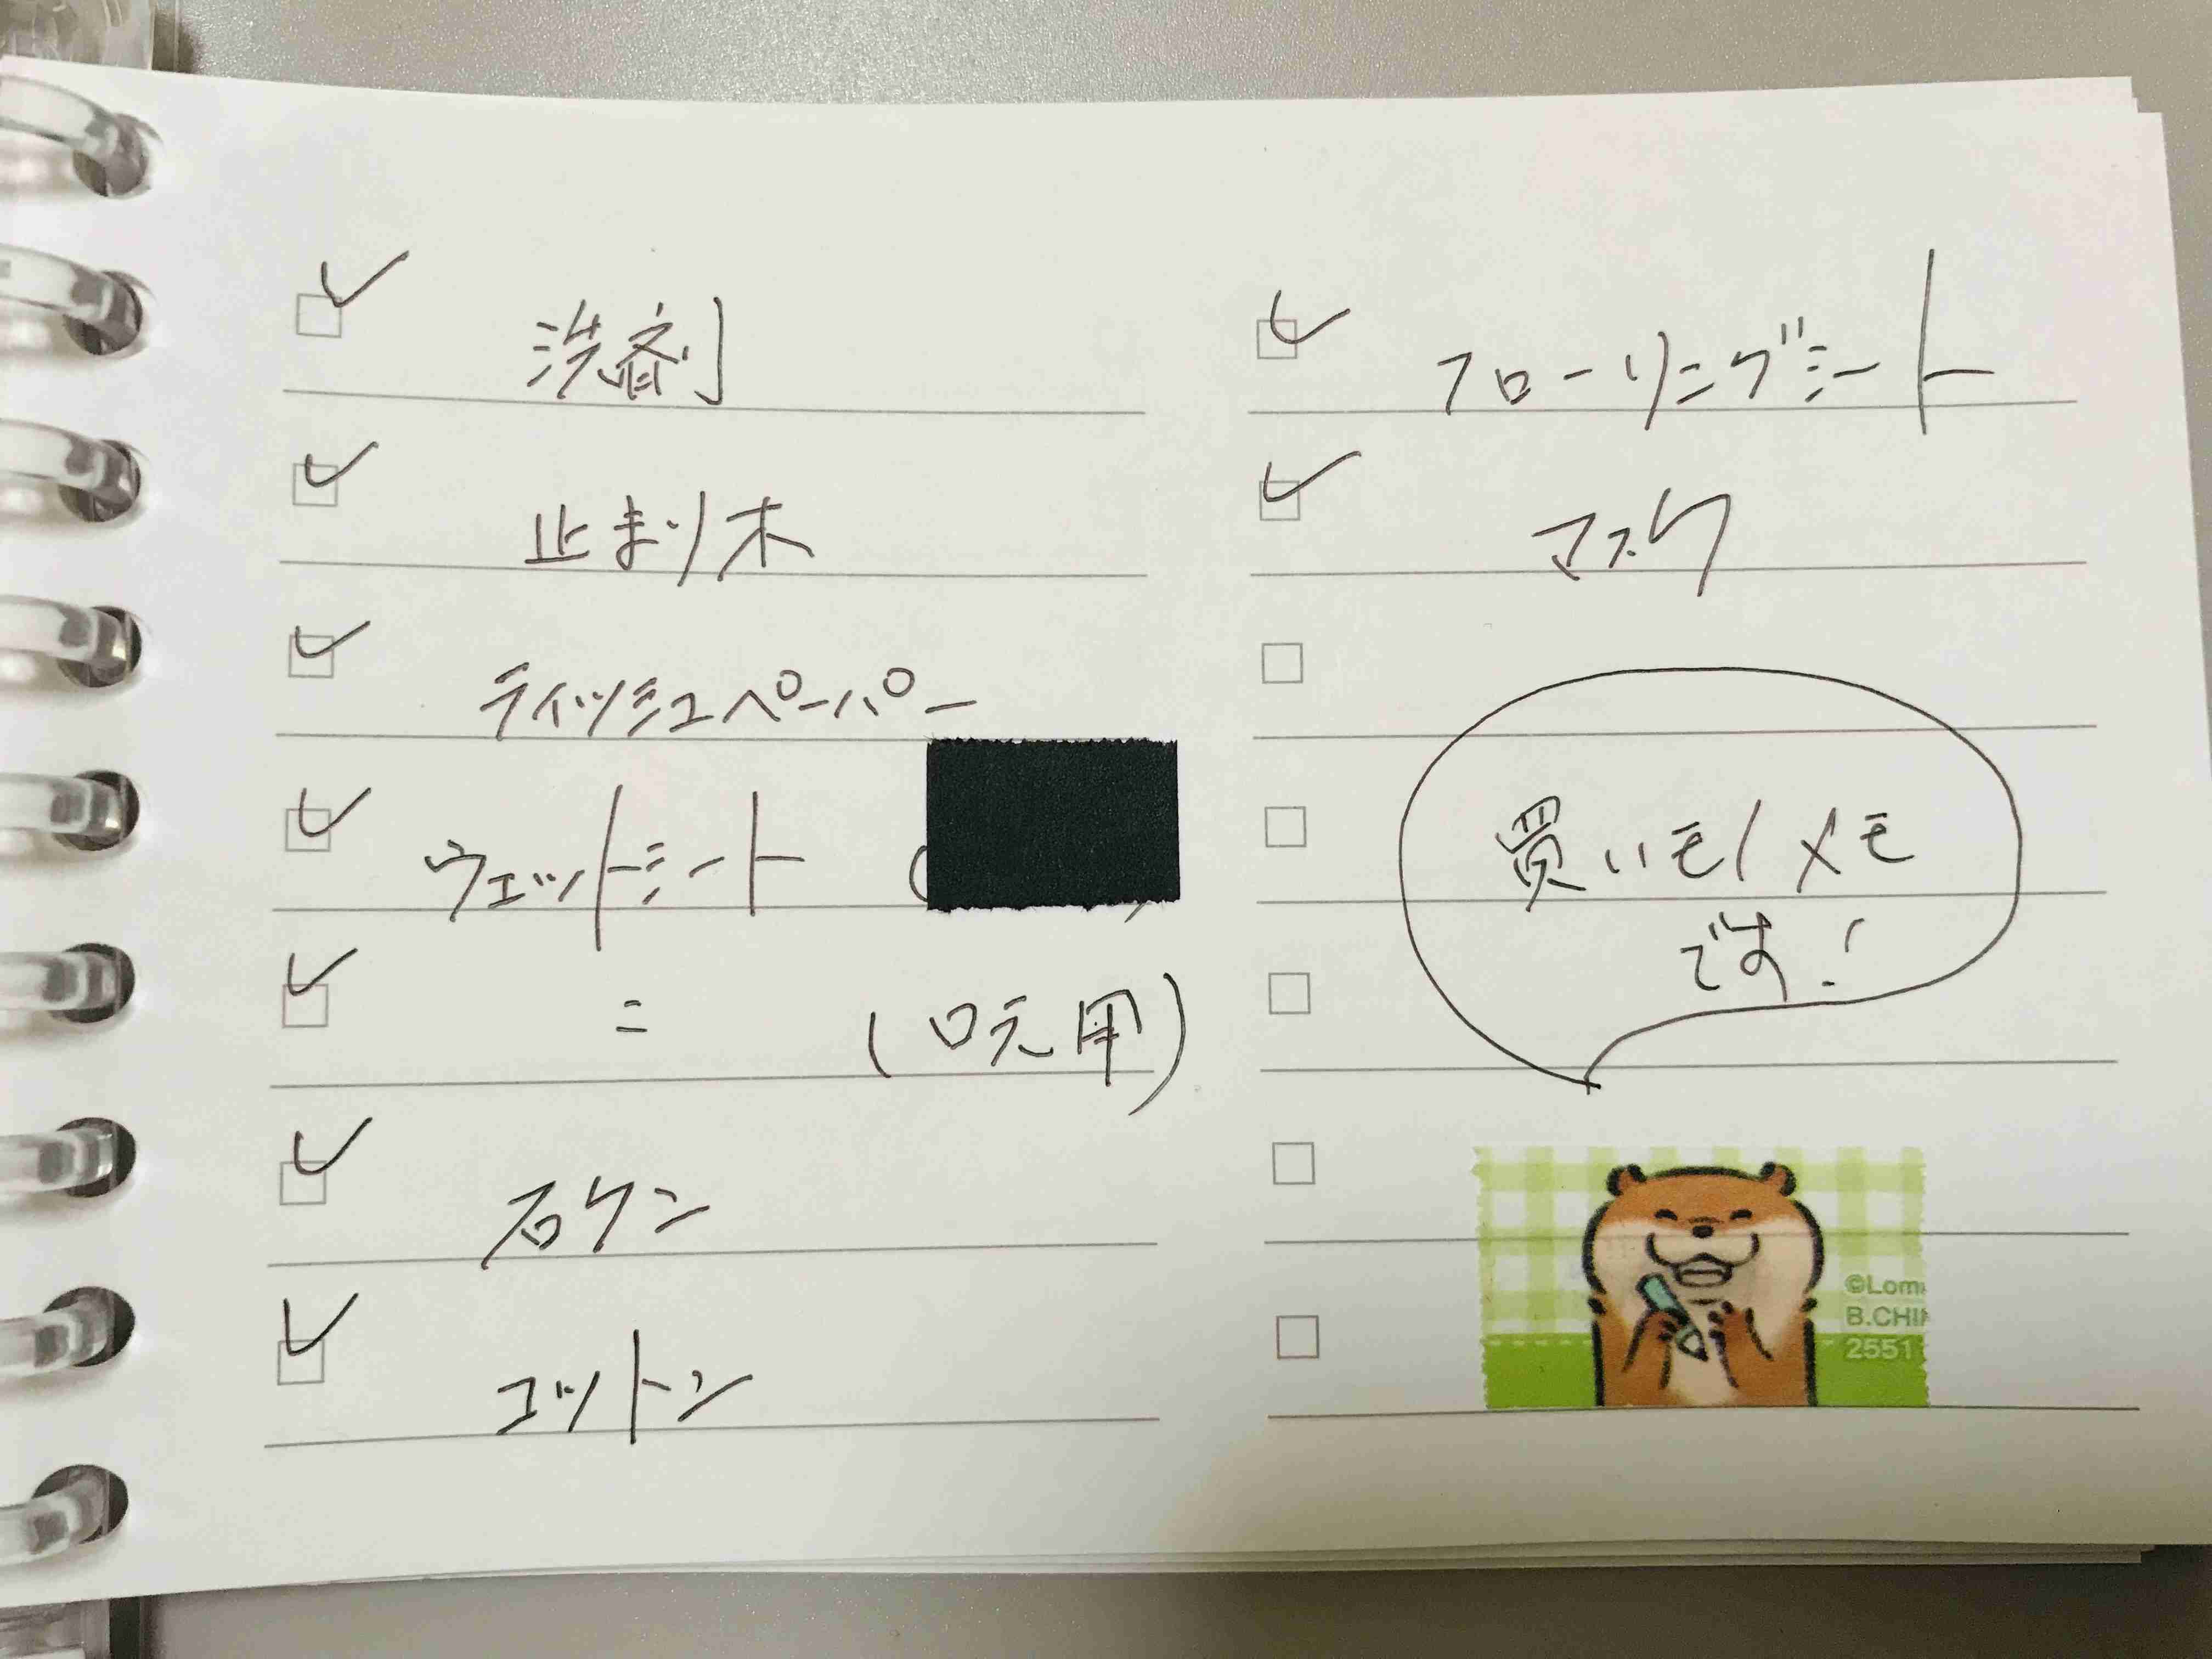 洗剤
止まり木
ティッシュペーパー
ウェットシート (
〃 (口元用)
石ケン
コットン
フローリングシート
マスク
買いモノメモ
です!
©Lom
B.CHI
2551